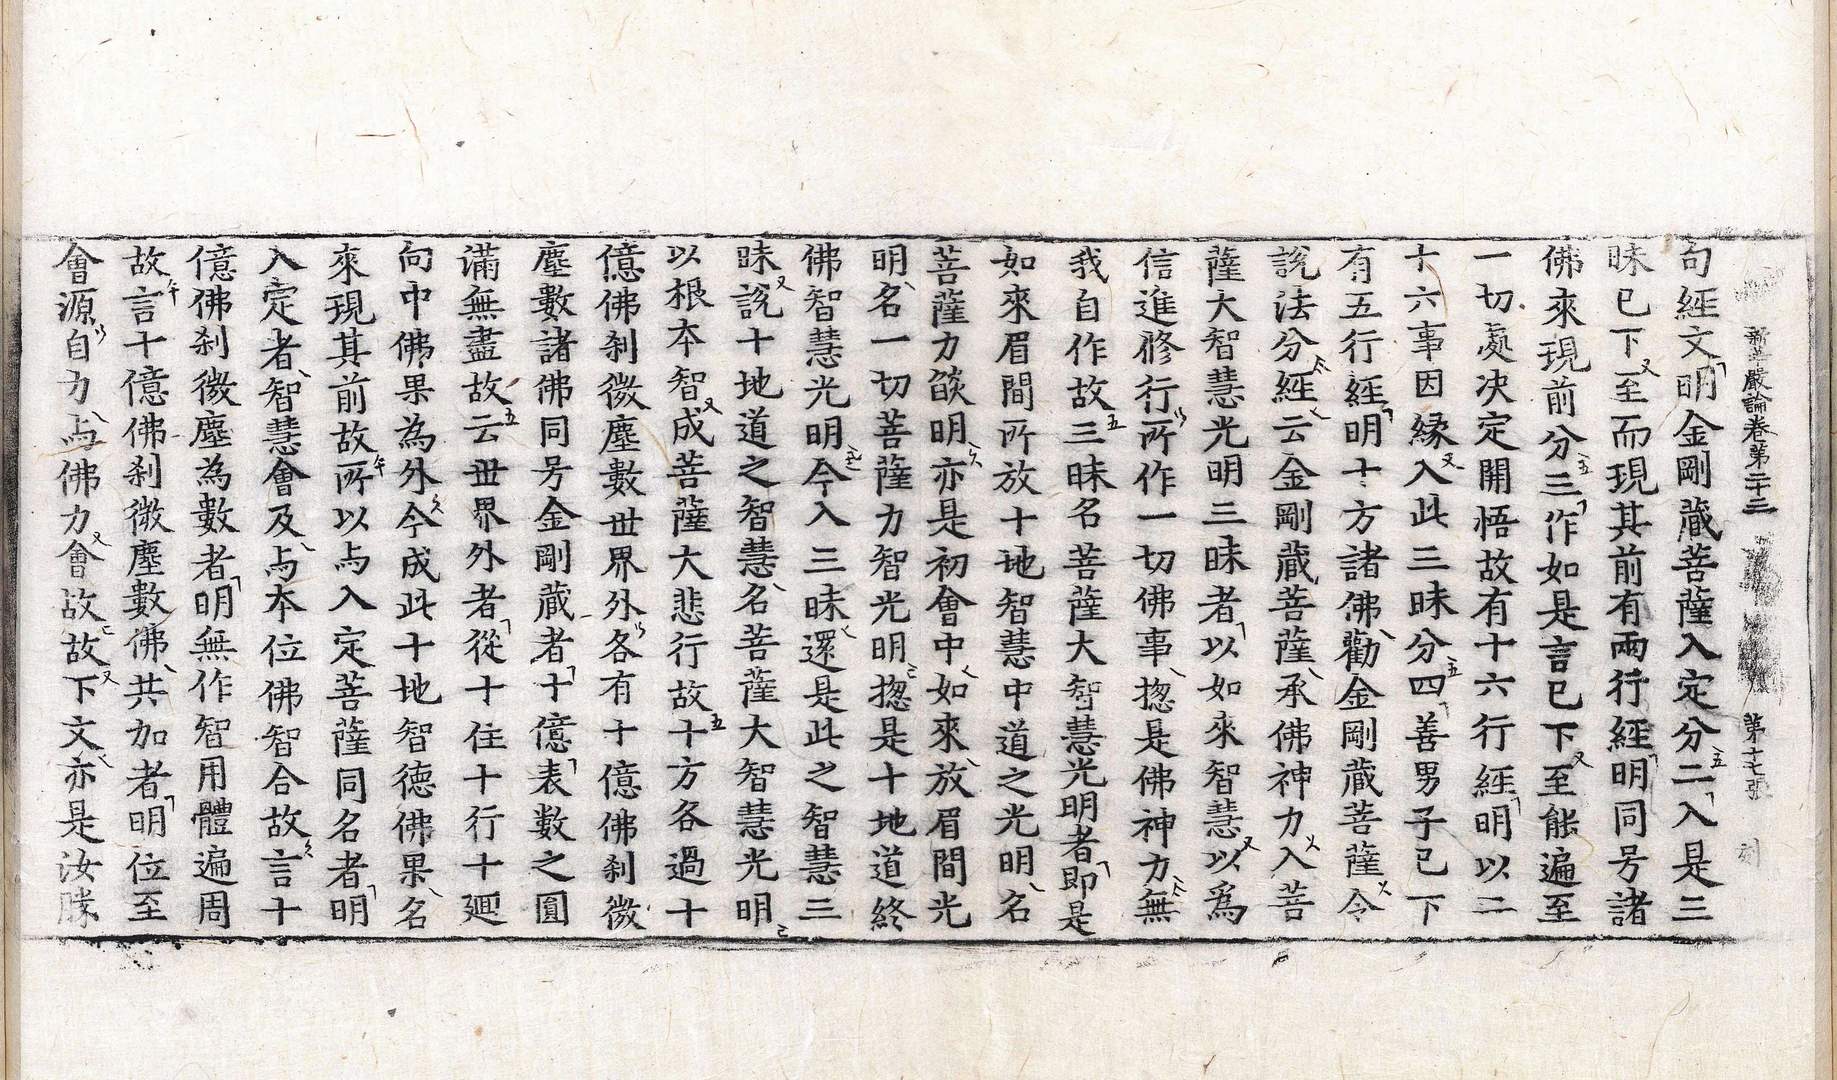 新華嚴論卷第二十三　第十七張　刻
句經文明金剛藏菩薩入定分二入是三
昧已下至而現其前有兩行經明同号諸
佛來現前分三作如是言已下至能遍至
一切處決定開悟故有十六行經明以二
十六事因緣入此三昧分四善男子已下
有五行經明十方諸佛勸金剛藏菩薩令
說法分經云金剛藏菩薩承佛神力入菩
薩大智慧光明三昧者以如來智慧以爲
信進修行所作一切佛事揔是佛神力無
我自作故三昧名菩薩大智慧光明者即是
如來眉間所放十地智慧中道之光明名
菩薩力燄明亦是初會中如來放眉間光
明名一切菩薩力智光明揔是十地道終
佛智慧光明今入三昧還是此之智慧三
昧說十地道之智慧名菩薩大智慧光明
以根本智成菩薩大悲行故十方各過十
億佛刹微塵數世界外各有十億佛刹微
塵數諸佛同号金剛藏者十億表數之圓
滿無盡故云世界外者從十住十行十迴
向中佛果為外今成此十地智德佛果名
來現其前故所以与入定菩薩同名者明
入定者智慧會及与本位佛智合故言十
億佛刹微塵為數者明無作智用體遍周
故言十億佛刹微塵數佛共加者明位至
會源自力与佛力會故故下文亦是汝勝